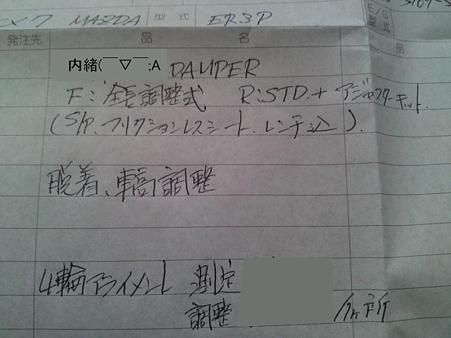 CX7 MAZDA 型式 ER3P
E/G型式
発注先 品 名
内緒(￣▽￣;A DAMPER
F: 全長調整式 R:STD.+アジャスターキット.
(S/P. フリクションレスシート.レンチ込).
脱着、車高調整
4輪アライメント 測定
調整 ヶ所